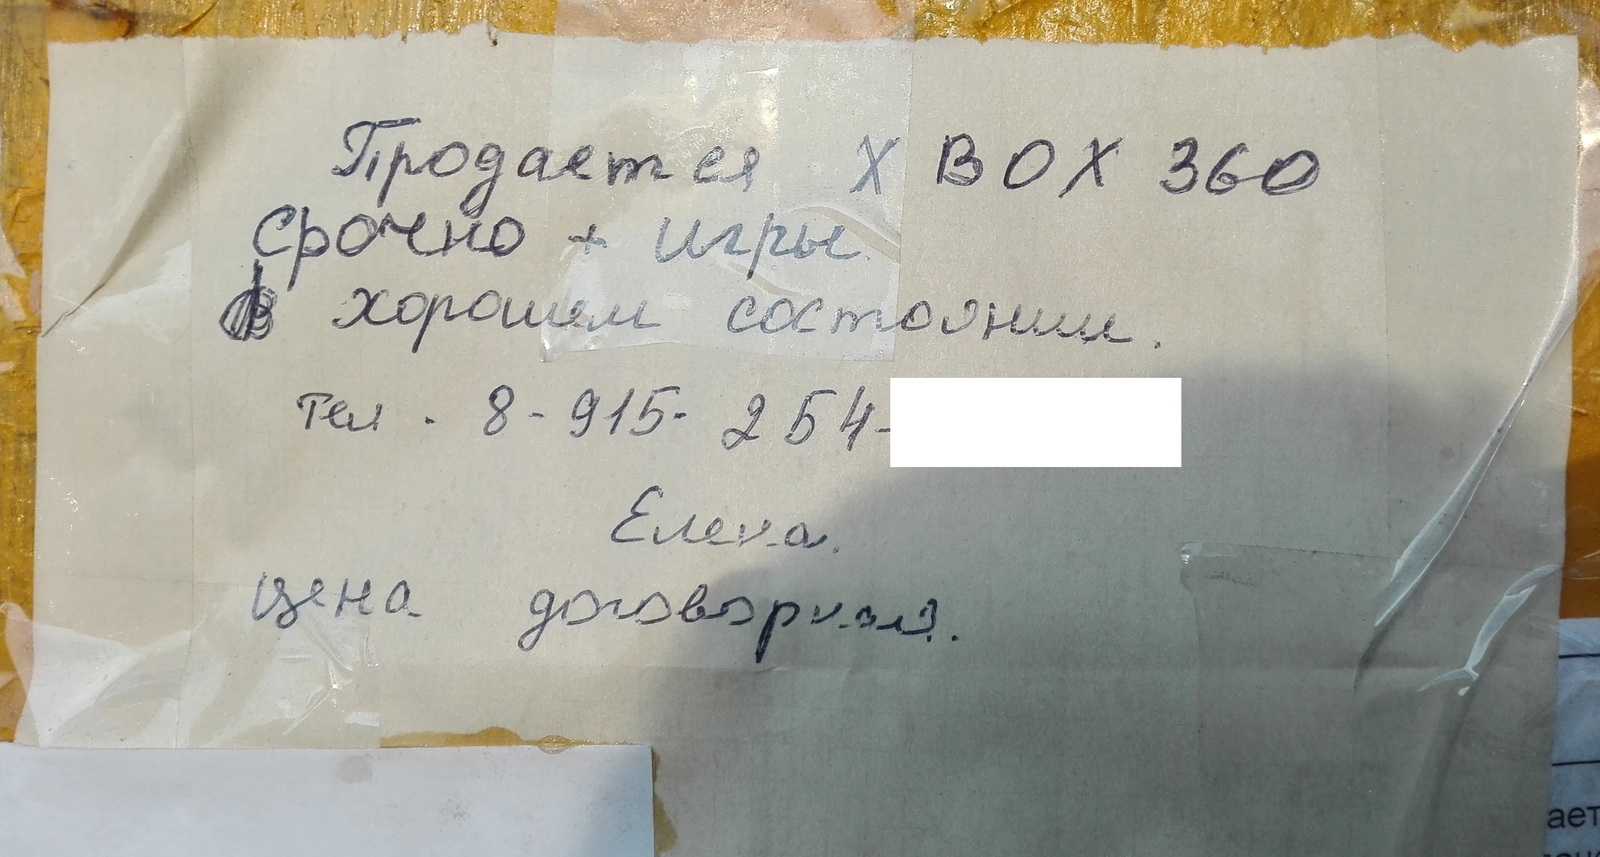 Продается X BOX 360
срочно + игры
В хорошем состоянии.
тел. 8-915-254-
Елена.
цена договорная.
ает